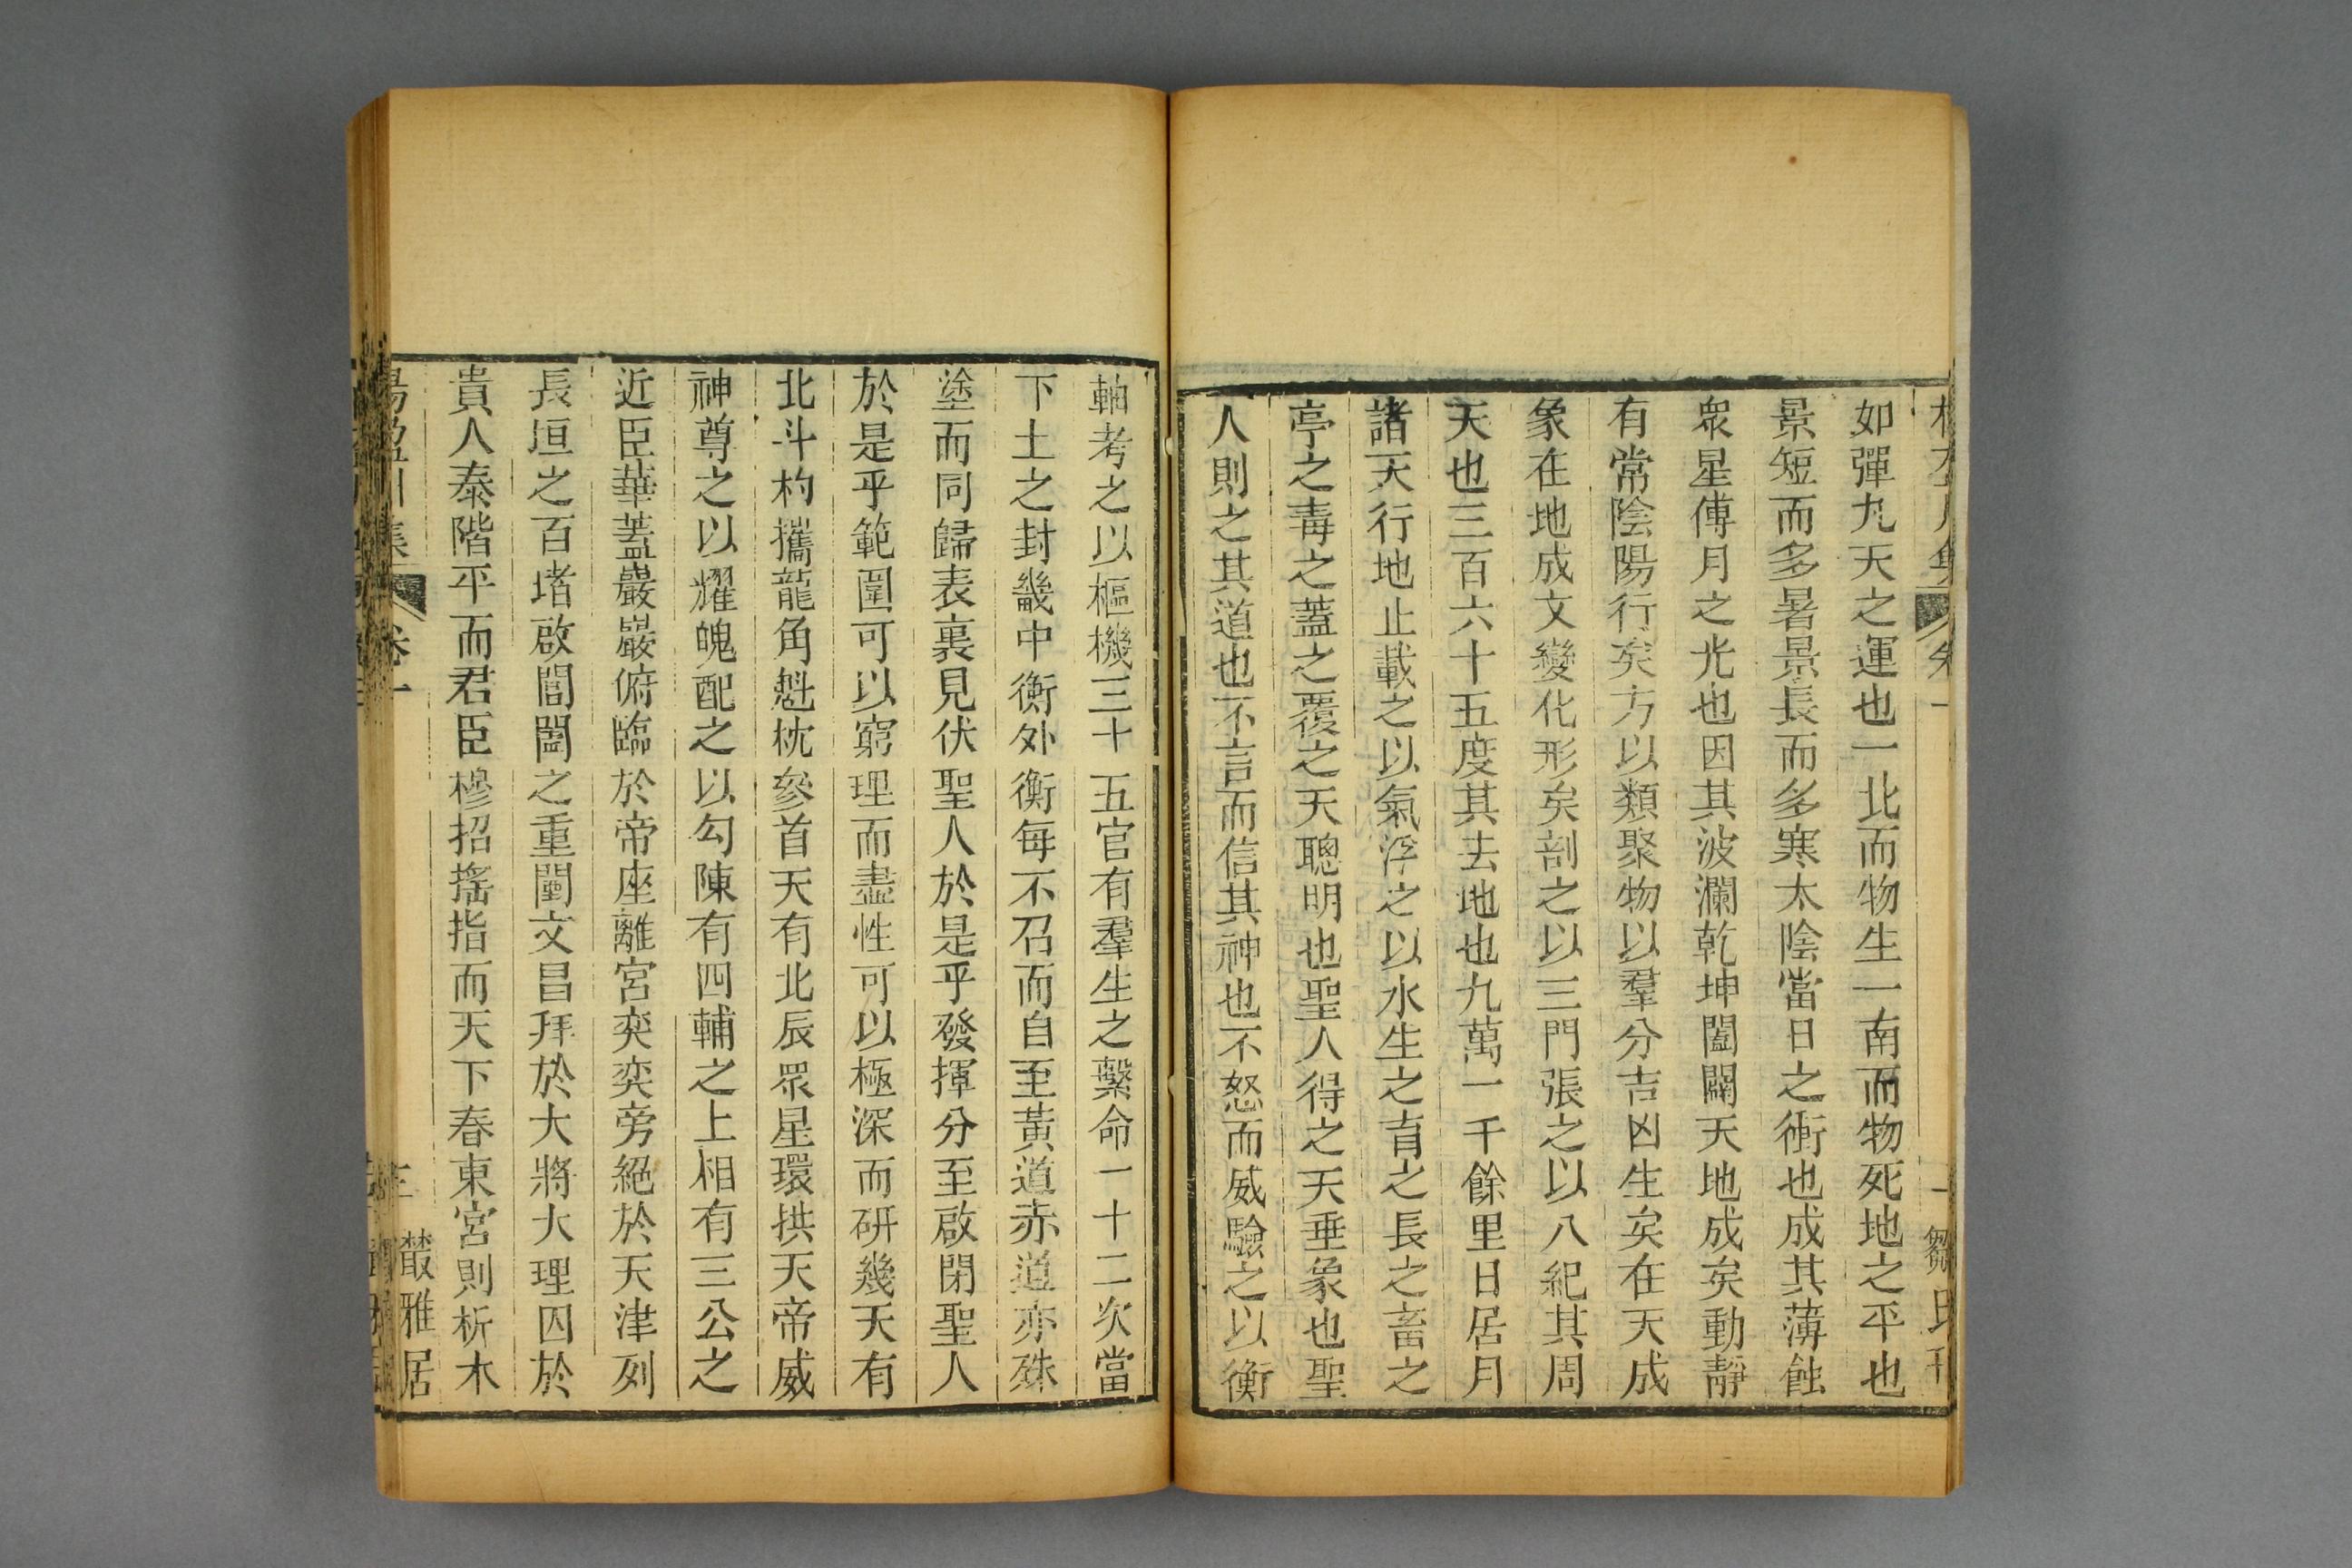 如彈丸天之運也一北而物生一南而物死地之平也
景短而多暑景長而多寒太陰當日之衝也成其薄蝕
衆星傅月之光也因其波瀾乾坤闔闢天地成矣動靜
有常陰陽行矣方以類聚物以羣分吉凶生矣在天成
象在地成文變化形矣剖之以三門張之以八紀其周
天也三百六十五度其去地也九萬一千餘里日居月
諸天行地止載之以氣浮之以水生之育之長之畜之
亭之毒之蓋之覆之天聰明也聖人得之天垂象也聖
人則之其道也不言而信其神也不怒而威驗之以衡
軸考之以樞機三十五官有羣生之繫命一十二次當
下土之封畿中衡外衡每不召而自至黃道赤道亦殊
塗而同歸表裏見伏聖人於是乎發揮分至啟閉聖人
於是乎範圍可以窮理而盡性可以極深而研幾天有
北斗杓攜龍角魁枕參首天有北辰眾星環拱天帝威
神尊之以耀魄配之以勾陳有四輔之上相有三公之
近臣華蓋巖巖俯臨於帝座離宮奕奕旁絕於天津列
長垣之百堵啟閶闔之重闉文昌拜於大將大理囚於
貴人泰階平而君臣穆招搖指而天下春東宮則析木
卷一
三
叢雅居